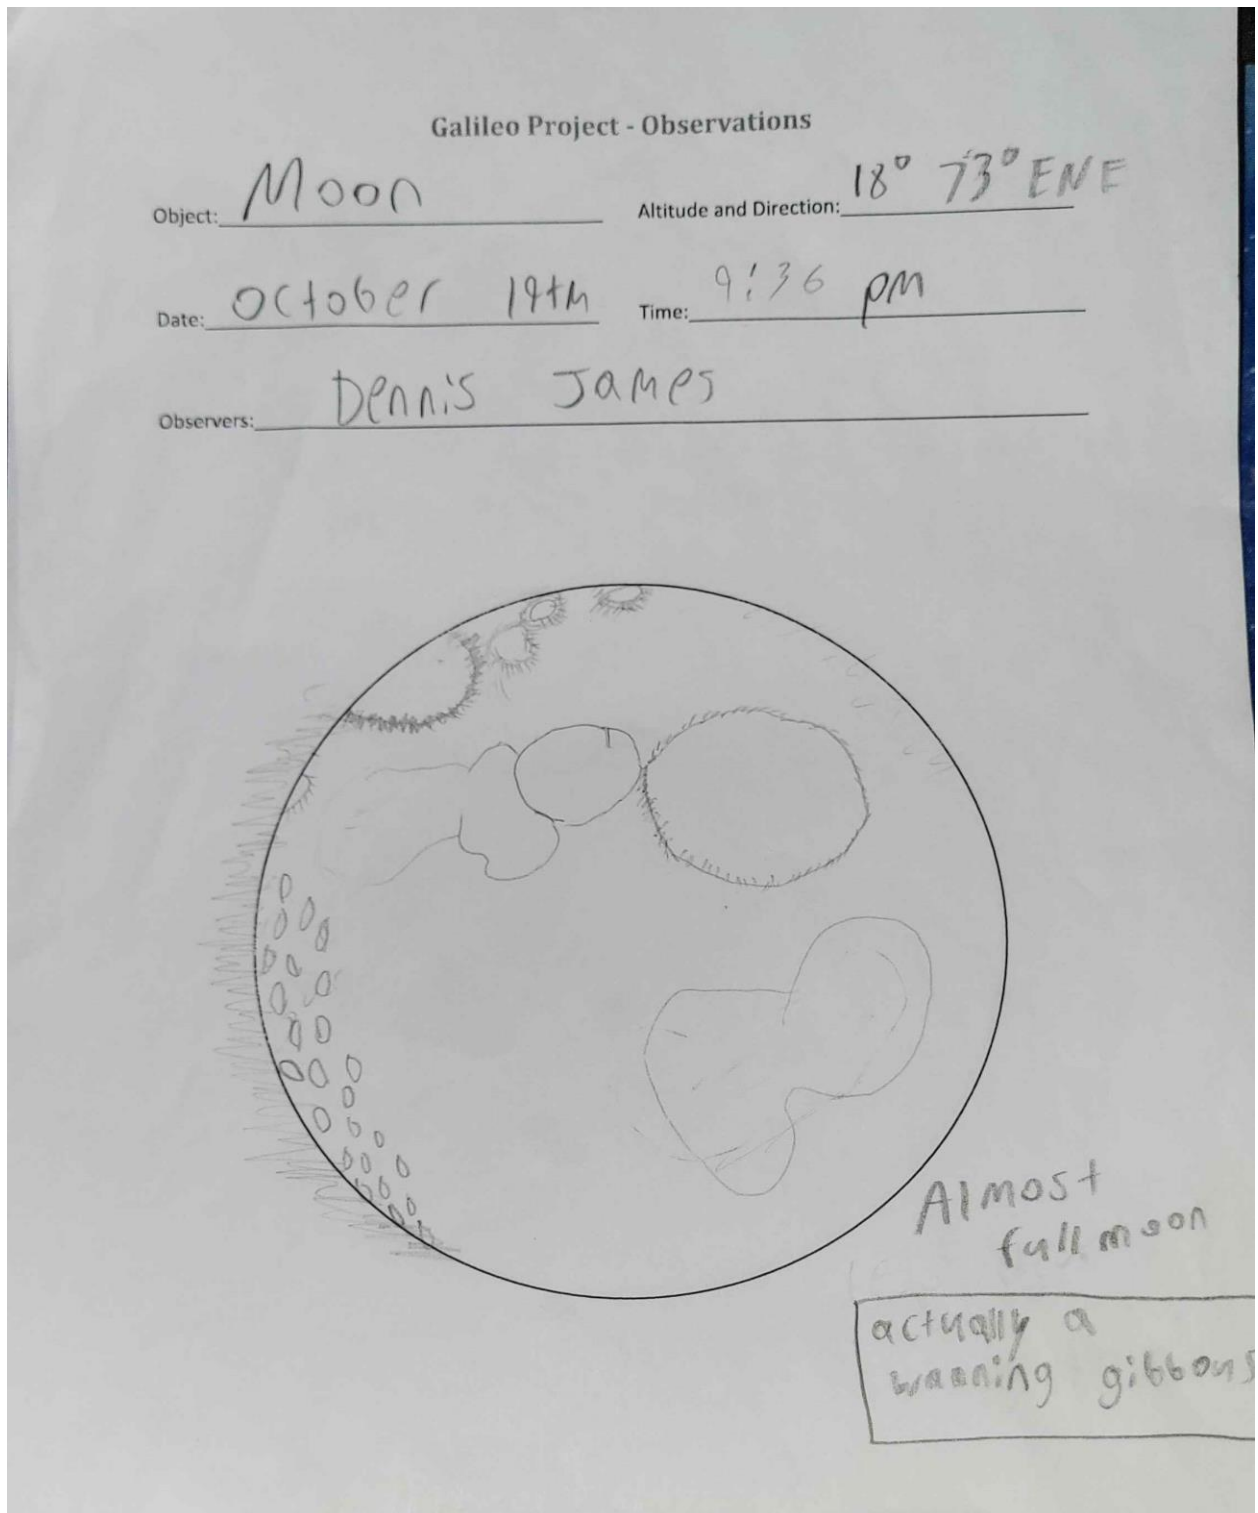 Galileo Project - Observations
Object: Moon
Altitude and Direction: 18° 73° ENE
Date: October 19th
Time: 9:36 pm
Observers: Dennis James
Almost
full moon
actually a
wanning gibbous